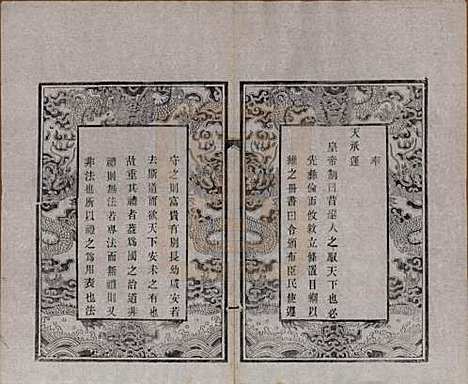 奉
天承運
皇帝制曰昔聖人之馭天下也必
先彝倫而攸敘立條置目綱以
維之冊書曰令頒布臣民使遵
守之則富貴有別長幼咸安若
去斯道而欲天下安未之有也
故重其禮者蓋為國之治道非
禮則無法若專法而無禮則又
非法也所以禮之為用表也法